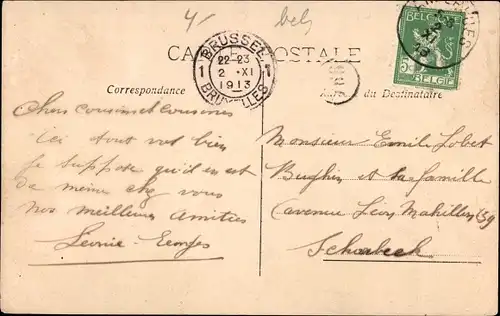 4/- bels
CARTE POSTALE
BRUSSEL 1
22-23
2 XI
1913
BRUXELLES 1
BELGIQUE
5c 5c
BELGIË
Correspondance
du Destinataire
Chers cousins et cousines
ici tout va bien
je suppose qu'il en est
de meme chez vous
Nos meilleurs Amities
Léonie Georges
Monsieur Emile Lobet
et la famille
avenue Léon Mahillon 59
Scharbeek